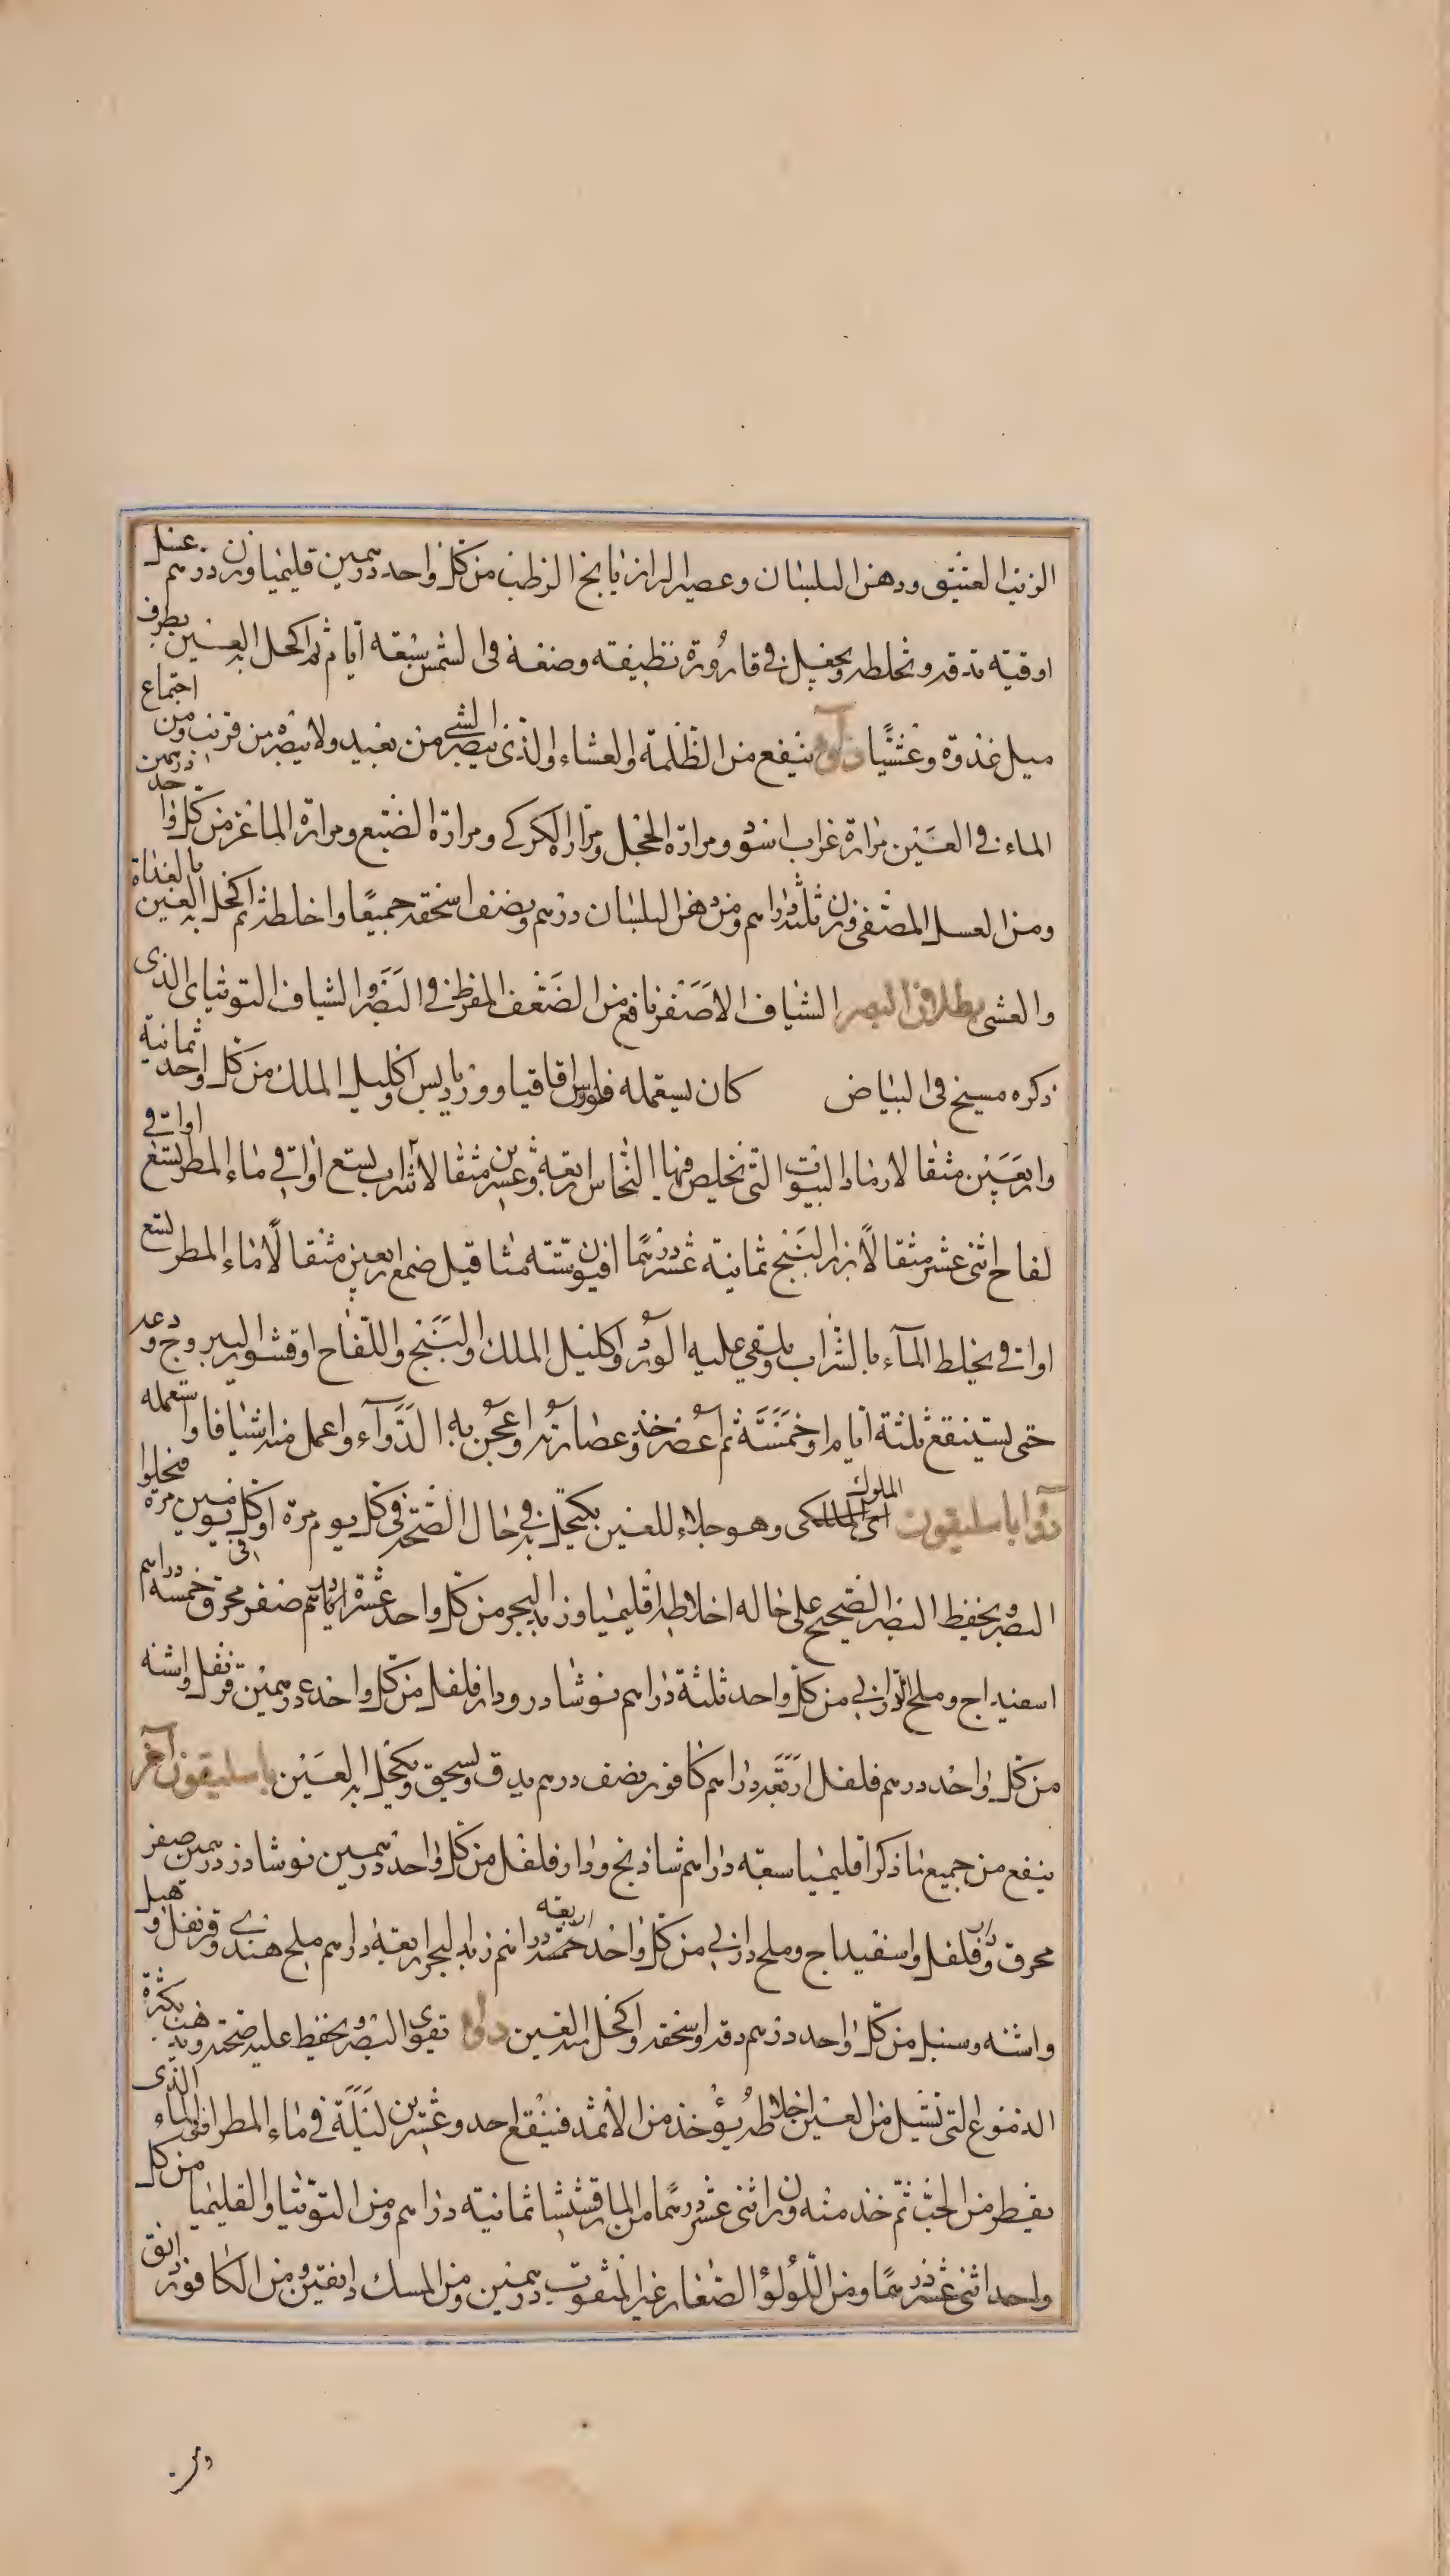 الزيت العتيق ودهن البلسان وعصير الرازيانج الرطب من كل واحد درهمين قليميا وزن درهم عسل
اوقية تدقه وتخلطه وتجعله في قارورة نظيفة وضعه في الشمس سبعة أيام ثم اكحل به العين بطرف
ميل غدوة وعشيًا دواء آخر ينفع من الظلمة والعشاء والذي يبصر الشيء من بعيد ولا يبصره من قريب ومن اجتماع
الماء في العين مرارة غراب اسود ومرارة الحجل ومرارة الكركي ومرارة الضبع ومرارة الماعز من كل واحد درهمين
ومن العسل المصفى وزن ثلثة دراهم ومن دهن البلسان درهم ونصف اسحقه جميعًا واخلطه ثم اكحل به العين بالغداة
والعشي بطلاوس البصر الشياف الاصفر نافع من الضعف المفرط في البصر والشياف التوتياى الذى
ذكره مسيح في البياض كان يستعمله فلورس اقاقيا وورد يابس واكليل الملك من كل واحد ثمانية
واربعين مثقالا رماد البيوت التي يخلص فيها النحاس اربعة وعشرين مثقالا شراب تسع أواقي ماء المطر تسع اواقي
لفاح اثني عشر مثقالاً بزر البنج ثمانية عشر درهمًا افيون ستة مثاقيل صمغ اربعين مثقالاً ماء المطر تسع
اواقي يخلط المآء بالشراب ويلقي عليه الورد واكليل الملك والبنج واللفاح اوقشور اليبروج ودعه
حتى يستنقع ثلثة أيام او خمسة ثم أعصر وخذ عصارته واعجن به الدَّوآء واعمل منه اشيافا واستعمله
دوا باسليقون اى الملوك وهو جلاء للعين يكتحل به في حال الصحة في كل يوم مرة او في كل يومين مرة فيجلوا
البصر ويحفظ البصر الصحيح على حاله اخلاطه اقليميا وزبد البحر من كل واحد عشرة دراهم صفر محرق خمسة دراهم
اسفيداج وملح الدراني من كل واحد ثلثة دراهم نوشادر ودار فلفل من كل واحد درهمين قرنفل واشنه
من كل واحد درهم فلفل اربعة دراهم كافور نصف درهم يدق ويسحق ويكحل به العين باسليقون آخر
ينفع من جميع ما ذكر اقليميا سبعة دراهم شاذنج ودار فلفل من كل واحد درهمين نوشادر درهمين صفر
محرق ودار فلفل واسفيداج وملح دراني من كل واحد خمسة دراهم زبد البحر اربعة دراهم ملح هندي وقرنفل وهيل
واشنه وسنبل من كل واحد درهم دقه واسحقه واكحل به العين دواء يقوى البصر ويحفظ عليه صحته ويذهب بكثرة
الدموع التي تسيل من العين اخلاطه يؤخذ من الاثمد فينقع احد وعشرين ليلة في ماء المطر او في الماء الذى
يقطر من الحب ثم خذ منه وزن اثني عشر درهمًا من المارقشيشا ثمانية دراهم ومن التوتيا والقليميا من كل
واحد اثني عشر درهمًا ومن اللؤلؤ الصغار غير المثقوب درهمين ومن المسك دانقين ومن الكافور دانق